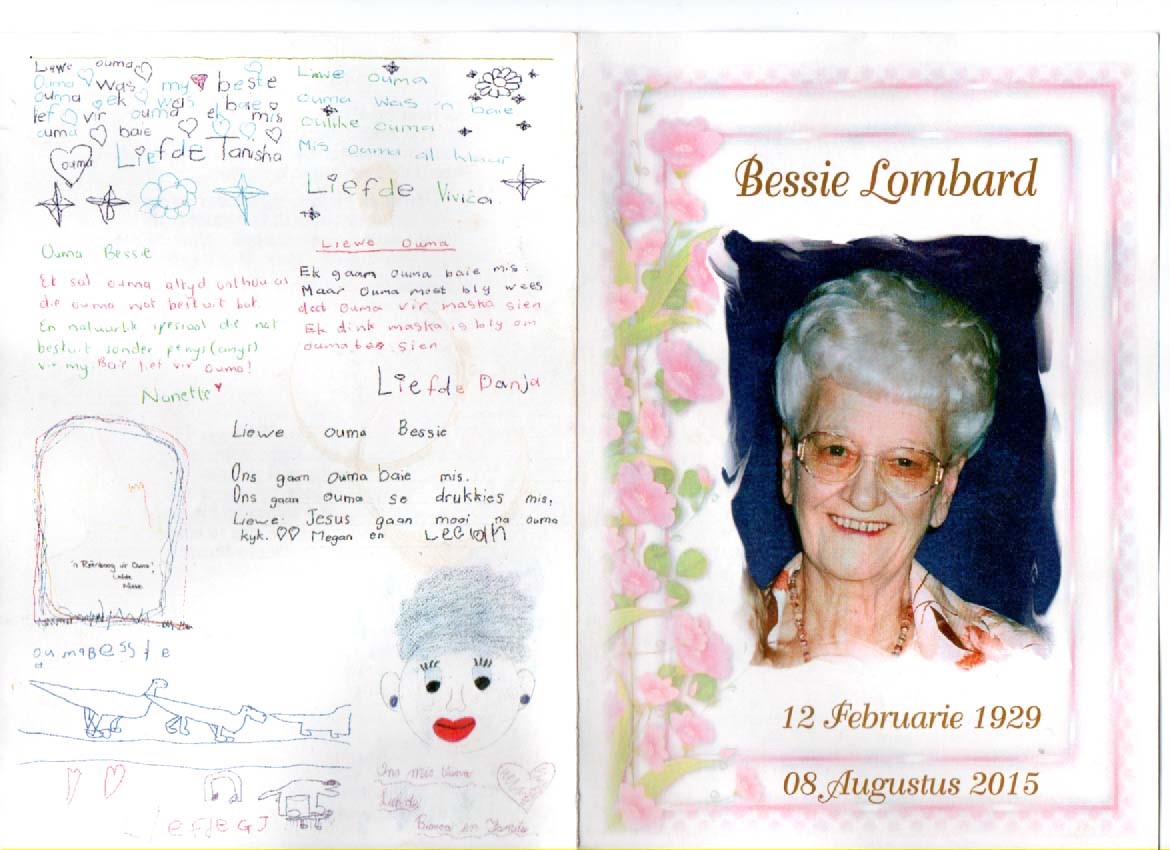 Liewe ouma
Ouma was my beste
ouma ek was baie
lief vir ouma ek mis
ouma baie
ouma
Liefde Tanisha
Liewe ouma
ouma was 'n baie
oulike ouma
Mis ouma al klaar
Liefde Vivica
Ouma Bessie
Ek sal ouma altyd onthou as
die ouma wat bestuit het.
En natuurlik spesiaal die net
bestuit sonder penys (anys)
vir my. Baie lief vir ouma!
Nanette
Liewe Ouma
Ek gaan ouma baie mis.
Maar ouma moet bly wees
dat ouma vir maska sien
Ek dink maska is bly om
ouma te sien
Liefde Danja
Liewe ouma Bessie
Ons gaan ouma baie mis.
Ons gaan ouma se drukkies mis,
Liewe Jesus gaan mooi na ouma
kyk. Megan en Leegh
'n Reënboog vir Ouma!
Liefde
oumaBessie
Liefde GJ
Ons mis Ouma
Liefde
Bianca en Familie
Bessie Lombard
12 Februarie 1929
08 Augustus 2015